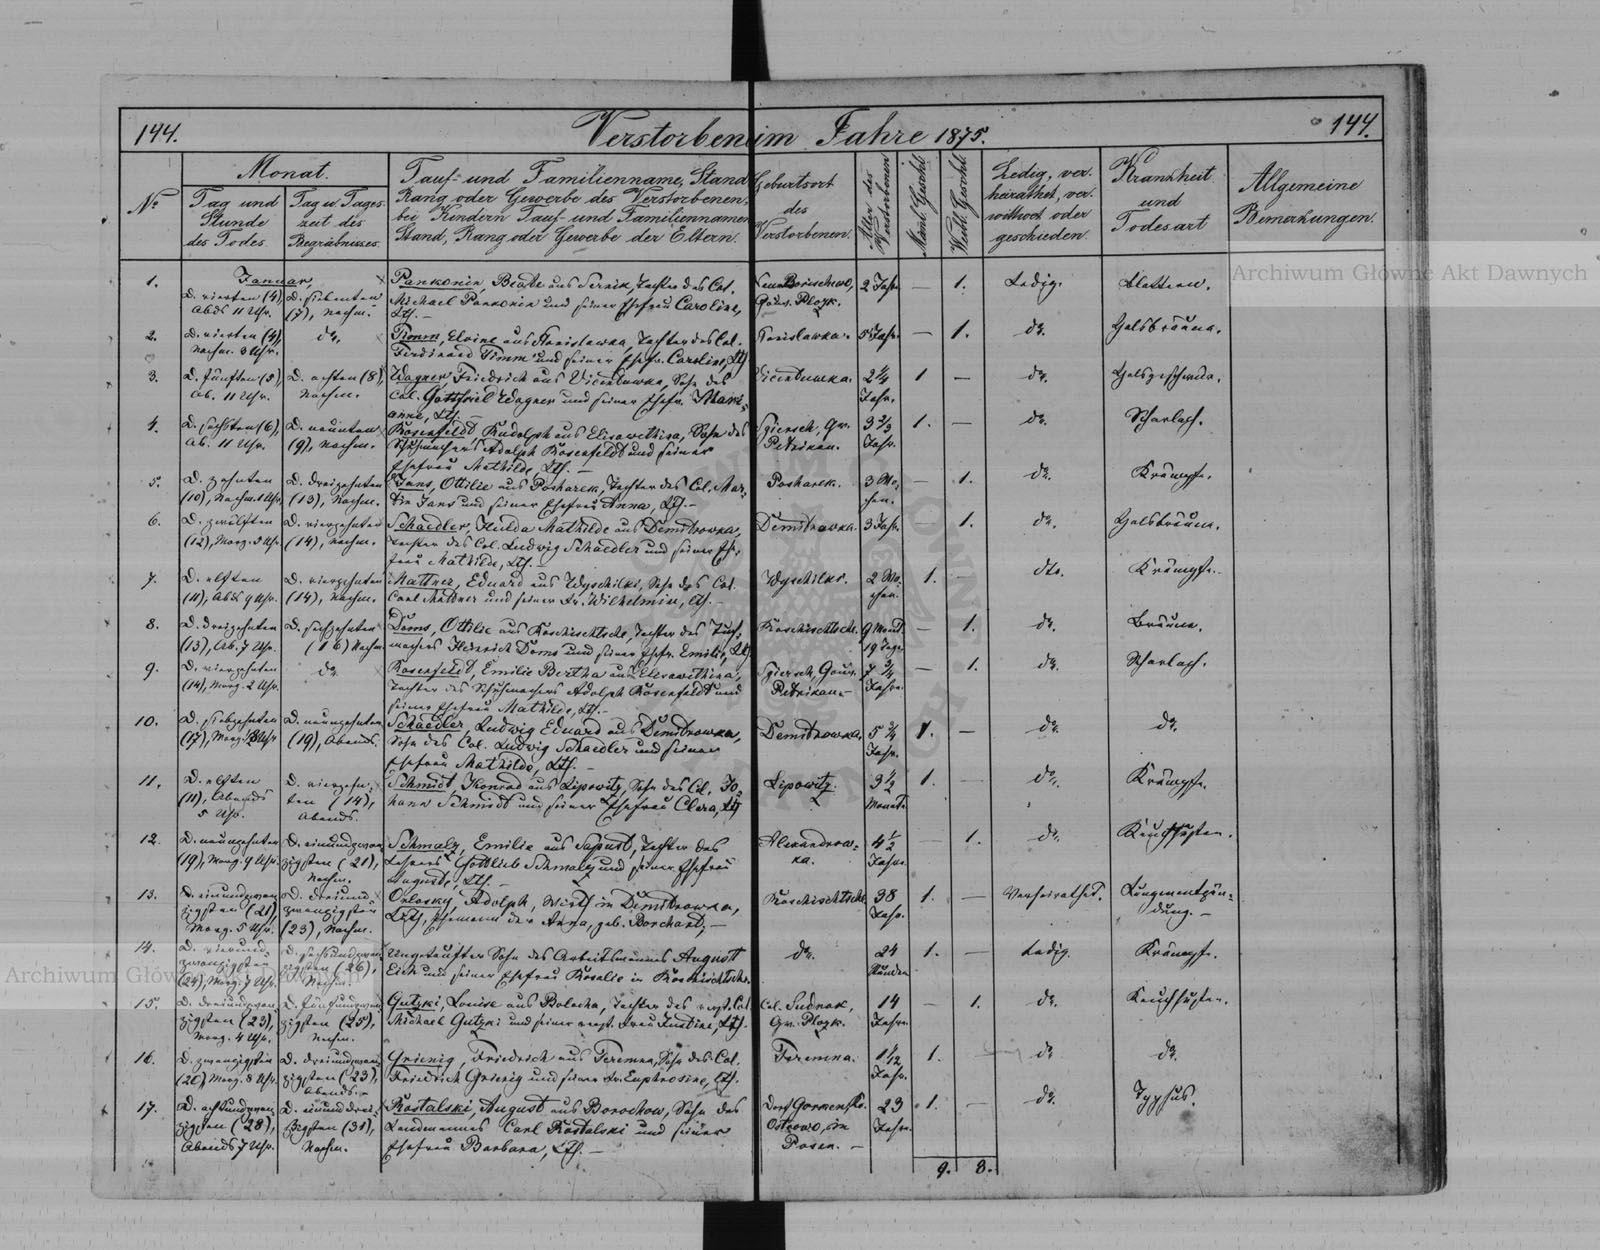 144.
Verstorben im Jahre 1875.
144.
No
Monat.
Tag und
Stunde
des Todes.
Tag u. Tages-
zeit des
Begräbnisses.
Tauf- und Familienname, Stand
Rang oder Gewerbe des Verstorbenen,
bei Kindern Tauf- und Familiennamen
Stand, Rang oder Gewerbe der Eltern.
Geburtsort
des
Verstorbenen.
Alter des
Verstorbenen
Männl. Geschl.
Weibl. Geschl.
Ledig, ver-
heirathet, ver-
wittwet oder
geschieden.
Krankheit
und
Todesart
Allgemeine
Bemerkungen.
1.
Januar,
D. vierten (4)
Abds 11 Uhr.
D. siebenten
(7), Nachm.
Pankonin Beate aus Sernik, Tochter des Col.
Michael Pankonin und seiner Ehefrau Caroline,
Lth. —
Gouv. Plozk.
2 Jahr.
—
1.
Ledig.
Blattern.
2.
D. vierten (4),
Nachm. 3 Uhr.
do.
Timm, Elvine aus Stanislawka, Tochter des Col.
Ferdinand Timm und seiner Ehefr. Caroline, Lth
5 Jahr.
—
1.
do.
Halsbräune.
3.
D. fünften (5),
Ab. 11 Uhr.
D. achten (8),
Nachm.
Wagner, Friedrich aus Vicentuwka, Sohn des
Col. Gottfried Wagner und seiner Ehefr. Mari-
anne, Lth. —
Vicentuwka.
2 1/4
Jahr.
1
—
do.
4.
D. sechsten (6),
Ab. 11 Uhr.
D. neunten
(9), Nachm.
Rosenfeldt, Rudolph aus Elisawethina, Sohn des
Schuhmachers Adolph Rosenfeldt und seiner
Ehefrau Mathilde, Lth. —
Sgiersch, Gv.
Petrikau.
3 2/3
Jahr.
1.
—
do.
Scharlach.
5.
D. zehnten
(10), Nachm. 1 Uhr.
D. dreizehnten
(13), Nachm.
Jans, Ottilie aus Posharek, Tochter des Col. Mar-
tin Jans und seiner Ehefrau Anna, Lth. —
Posharek.
3 Wo-
chen.
—
1.
do.
Krämpfe.
6.
D. zwölften
(12), Morg. 3 Uhr
D. vierzehnten
(14), Nachm.
Schaedler, Hulda Mathilde aus Demitrowka,
Tochter des Col. Ludwig Schaedler und seiner Ehe-
frau Mathilde, Lth. —
Demitrowka.
3 Jahr.
—
1.
do.
Halsbräune.
7.
D. elften
(11), Abds 9 Uhr.
D. vierzehnten
(14), Nachm.
Mattner, Eduard aus Wyschilki, Sohn des Col.
Carl Mattner und seiner Fr. Wilhelmine, Lth. —
Wyschilki.
2 Wo-
chen.
1.
—
dto.
Krämpfe.
8.
D. dreizehnten
(13), Ab. 7 Uhr.
D. sechzehnten
(16) Nachm.
Doms, Ottilie aus Koschischtsche, Tochter des Tuch-
machers Heinrich Doms und seiner Ehefr. Emilie, Lth
Koschischtsche.
9 Monat
19 Tage
—
1.
do.
Bräune.
9.
D. vierzehnten
(14), Morg. 2 Uhr.
do
Rosenfeldt, Emilie Bertha aus Elisawethina,
Tochter des Schuhmachers Adolph Rosenfeldt und
seiner Ehefrau Mathilde, Lth. —
Sgiersch, Gouv.
Petrikau.
7 3/4
Jahre.
—
1.
do.
Scharlach.
10.
D. siebzehnten
(17), Morg. Uhr
D. neunzehnten
(19), Abends.
Schaedler, Ludwig Eduard aus Demitrowka,
Sohn des Col. Ludwig Schaedler und seiner
Ehefrau Mathilde, Lth. —
Demitrowka.
5 3/4
Jahr.
1.
—
do
do.
11.
D. elften
(11), Abends
5 Uhr.
D. vierzehn-
ten (14),
Abends.
Schmidt, Konrad aus Lipowitz, Sohn des Col. Jo-
hann Schmidt und seiner Ehefrau Clara, Lth
Lipowitz.
3 1/2
Monat.
1.
—
do.
Krämpfe.
12.
D. neunzehnten
(19), Morg. 9 Uhr.
D. einundzwan-
zigsten (21),
Nachm.
Schmalz, Emilie aus Sapust, Tochter des
Lehrers Gottlieb Schmalz und seiner Ehefrau
Auguste, Lth. —
Alexandrow-
ka.
4 1/2
Jahre
—
1.
do.
Keuchhusten.
13.
D. einundzwan-
zigsten (21),
Morg. 5 Uhr.
D. dreiund-
zwanzigsten
(23), Nachm.
Orlosky, Adolph, Wirth in Demitrowka,
Lth, Ehemann der Anna, geb. Borchard, —
Koschischtsche
38
Jahr.
1.
—
Verheirathet.
Lungenentzün-
dung. —
14.
D. vierund-
zwanzigsten
(24), Morg. 7 Uhr.
D. sechsundzwan-
zigsten (26),
Nachm.
Ungetaufter Sohn des Arbeitsmannes August
Eich und seiner Ehefrau Rosalie in Koschischtsche.
do.
24
Stunden
1.
—
Ledig.
Krämpfe.
15.
D. dreiundzwan-
zigsten (23),
Morg. 4 Uhr.
D. fünfundzwan-
zigsten (25),
Nachm.
Gutzki, Louise aus Bolecha, Tochter des verst. Col.
Michael Gutzki und seiner verst. Frau Justine, Lth. —
Col. Sudnak,
Gv. Plozk.
14
Jahre.
—
1.
do.
Keuchhusten.
16.
D. zwanzigsten
(20), Morg. 8 Uhr.
D. dreiundzwan-
zigsten (23),
Abends. —
Grienig, Friedrich aus Teremna, Sohn des Col.
Friedrich Grienig und seiner Fr. Euphrosine, Lth.
Teremna.
Jahr.
1.
—
do
do.
17.
D. achtundzwan-
zigsten (28),
Abends 7 Uhr.
D. einunddrei-
ßigsten (31),
Nachm.
Rostalski, August aus Borochow, Sohn des
Landmannes Carl Rostalski und seiner
Ehefrau Barbara, Lth. —
Dorf
Ostrowo, in
Posen. —
23
Jahr.
1.
—
do.
Typhus.
9.
8.
Archiwum Główne Akt Dawnych
Archiwum Główne Akt Dawnych